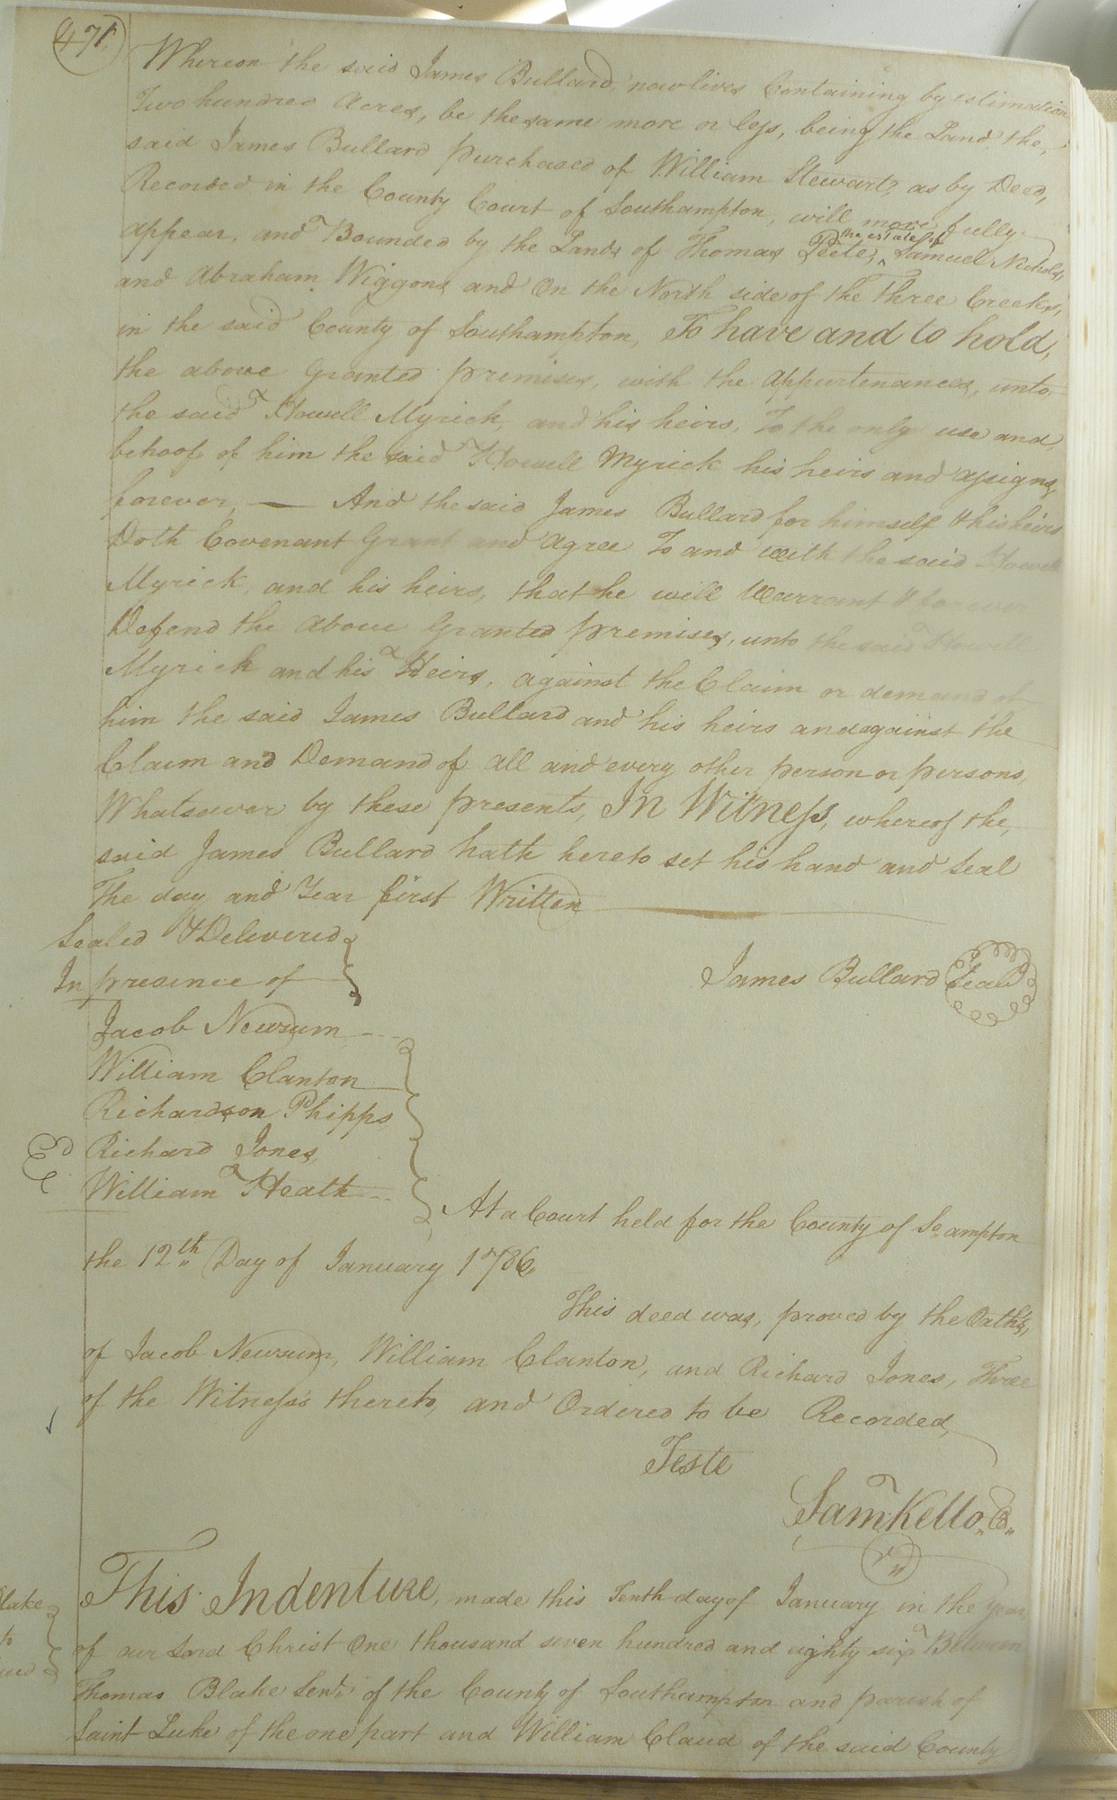 471
Whereon the said James Bullard now lives Containing by estimation
Two hundred Acres, be the same more or less, being the Land the,
said James Bullard purchased of William Stewart, as by Deed,
Recorded in the County Court of Southampton, will more fully
the estate of
appear, and Bounded by the Lands of Thomas Peete, ^ Samuel Nichols,
and Abraham Wiggons and On the North side of the Three Creeks,
in the said County of Southampton, To have and to hold,
the above Granted premises, with the Appurtenances, unto,
the said Howell Myrick, and his heirs, To the only use and
behoof of him the said Howell Myrick his heirs and assigns,
forever, — And the said James Bullard for himself & his heirs
Doth Covenant Grant and Agree To and with the said Howell
Myrick, and his heirs, that he will Warrant & forever
Defend the Above Granted premises, unto the said Howell
Myrick and his Heirs, against the Claim or demand of
him the said James Bullard and his heirs and against the
Claim and Demand of all and every other person or persons,
Whatsoever by these presents, In Witness, whereof the,
said James Bullard hath hereto set his hand and Seal
The day and Year first Written
Sealed & Delivered
In presence of
James Bullard Seal
Jacob Newsum
William Clanton
Richardson Phipps
Ed Richard Jones,
William Heath
At a Court held for the County of So.ampton
the 12th Day of January 1786
This deed was, proved by the Oath's,
of Jacob Newsum, William Clanton, and Richard Jones, Three
of the Witness's thereto, and Ordered to be Recorded,
Teste
Sam Kello, C.
This Indenture, made this Tenth day of January in the year
of our Lord Christ One thousand seven hundred and eighty six Between
Blake
to
Thomas Blake Senr. of the County of Southampton and parish of
Saint Luke of the one part and William Claud of the said County